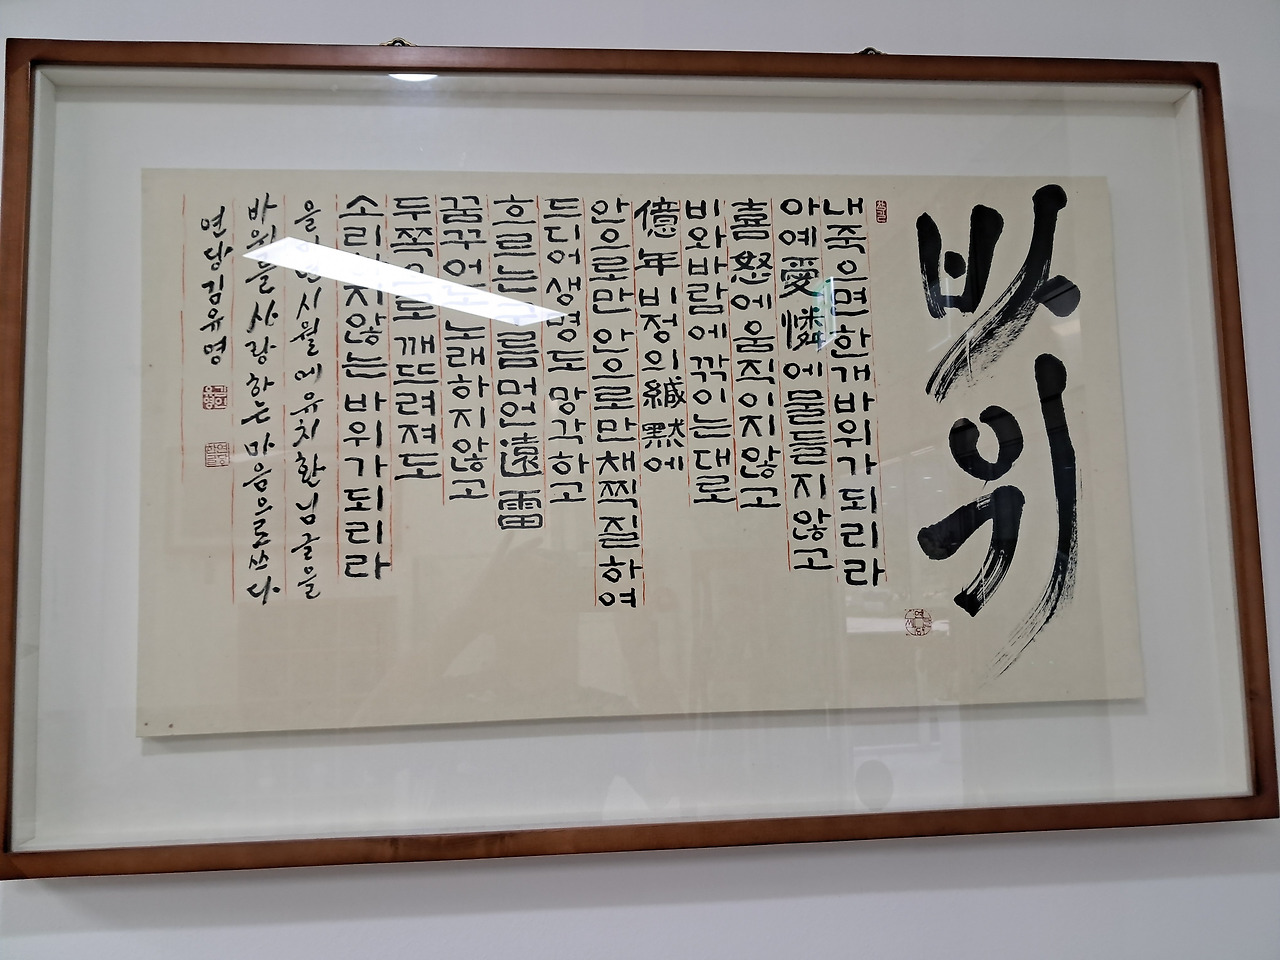 바위
내죽으면한개바위가되리라
아예愛憐에물들지않고
喜怒에움직이지않고
비와바람에깎이는대로
億年비정의緘默에
안으로만안으로만채찍질하여
드디어생명도망각하고
흐르는구름머언遠雷
꿈꾸어도노래하지않고
두쪽으로깨뜨려져도
소리하지않는바위가되리라
시월에유치환님글을
바위를사랑하는마음으로쓰다
연당김유영